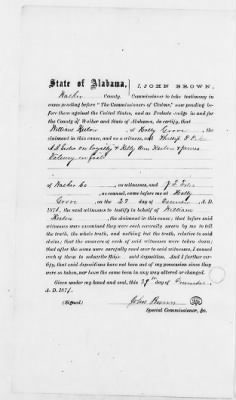 State of Alabama,
I, JOHN BROWN,
Walker County. Commissioner to take testimony in
cases pending before "The Commissioners of Claims," now pending be-
fore them against the United States, and as Probate Judge in and for
the County of Walker and State of Alabama, do certify, that
William of Holly Grove, the
claimant in this cause, and as a witness, and Phillip
on loyalty & and James
of Walker Co as witnesses, and
as counsel, came before me at Holly
Grove on the 27 day of A. D.
1871, the said witnesses to testify in behalf of William
claimant in this cause; that before said
witnesses were examined they were each severally sworn by me to tell
the truth, the whole truth, and nothing but the truth, relative to said
claim; that the answers of each of said witnesses were taken down;
that after the same were carefully read over to said witnesses, I caused
each of them to subscribe their said deposition. And I further cer-
tify, that said depositions have not been out of my possession since they
were so taken, nor have the same been in any way altered or changed.
Given under my hand and seal, this 29th day of December,
A. D. 1871.
(Signed) John Brown
Special Commissioner, &c.